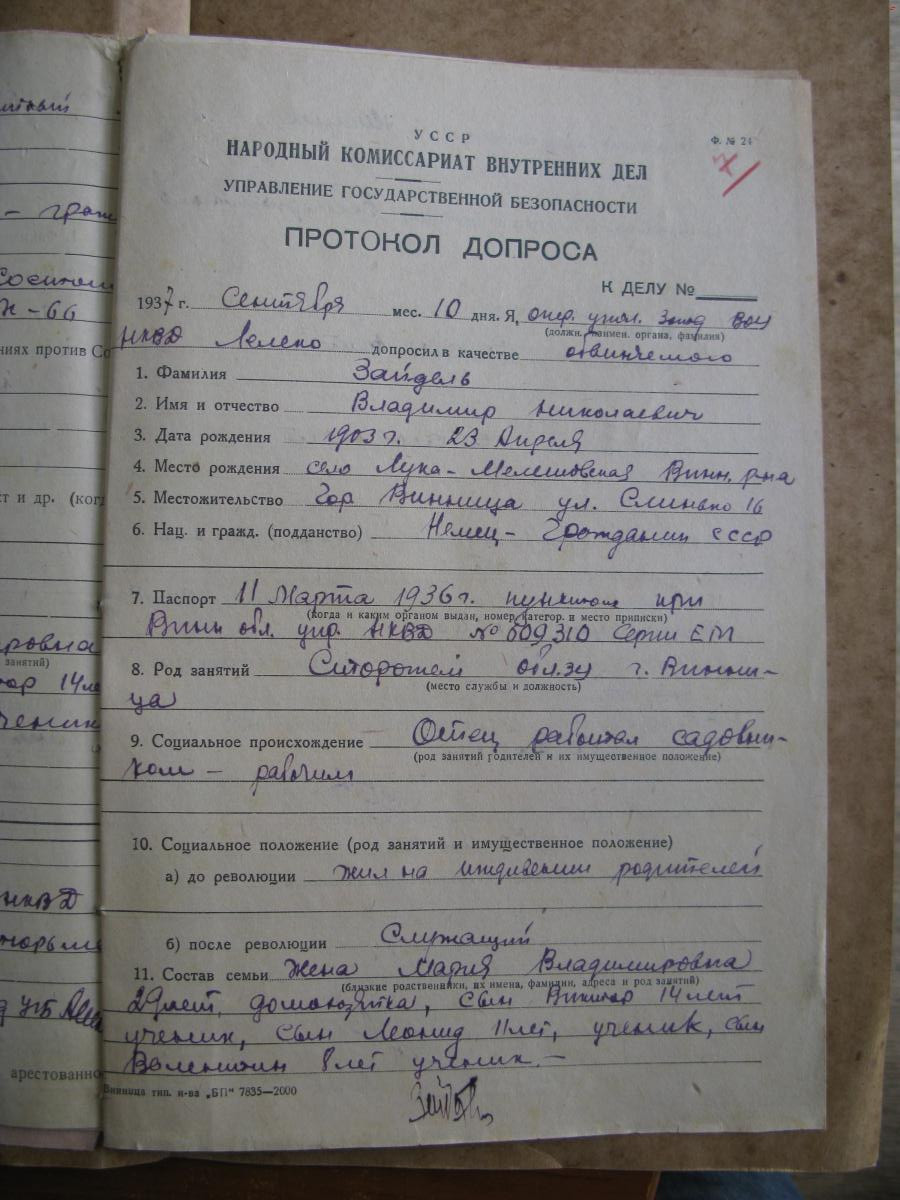 итный
– граж
Н-66
ниях против Со
ст и др. (ког
ровна
занятий)
14 ле
ученик
НКВД
тюрьме
арестованно
УССР
Ф. № 24
НАРОДНЫЙ КОМИССАРИАТ ВНУТРЕННИХ ДЕЛ
УПРАВЛЕНИЕ ГОСУДАРСТВЕННОЙ БЕЗОПАСНОСТИ
ПРОТОКОЛ ДОПРОСА
К ДЕЛУ №
1937 г. Сентября мес. 10 дня. Я, опер. уполн.
(должн. наимен. органа, фамилия)
НКВД Лелеко допросил в качестве обвиняемого
1. Фамилия Зайдель
2. Имя и отчество Владимир Николаевич
3. Дата рождения 1903 г. 23 Апреля
4. Место рождения село Лука-Мелешковская Винн. р-на
5. Местожительство Гор Винница ул. 16
6. Нац. и гражд. (подданство) Немец – Гражданин СССР
7. Паспорт 11 Марта 1936 г. при
(когда и каким органом выдан, номер, категор. и место приписки)
Винн обл. упр. НКВД № 609310 Серии ЕМ
8. Род занятий г. Винни-
(место службы и должность)
ца
9. Социальное происхождение Отец работал садовни-
(род занятий родителей и их имущественное положение)
ком – рабочим
10. Социальное положение (род занятий и имущественное положение)
а) до революции жил на иждивении родителей
б) после революции Служащий
11. Состав семьи жена Мария Владимировна
(близкие родственники, их имена, фамилии, адреса и род занятий)
29 лет, домохозяйка, сын Виктор 14 лет
ученик, сын Леонид 11 лет, ученик, сын
Валентин 8 лет ученик. –
Винница тип. и-ва „БП“ 7835—2000